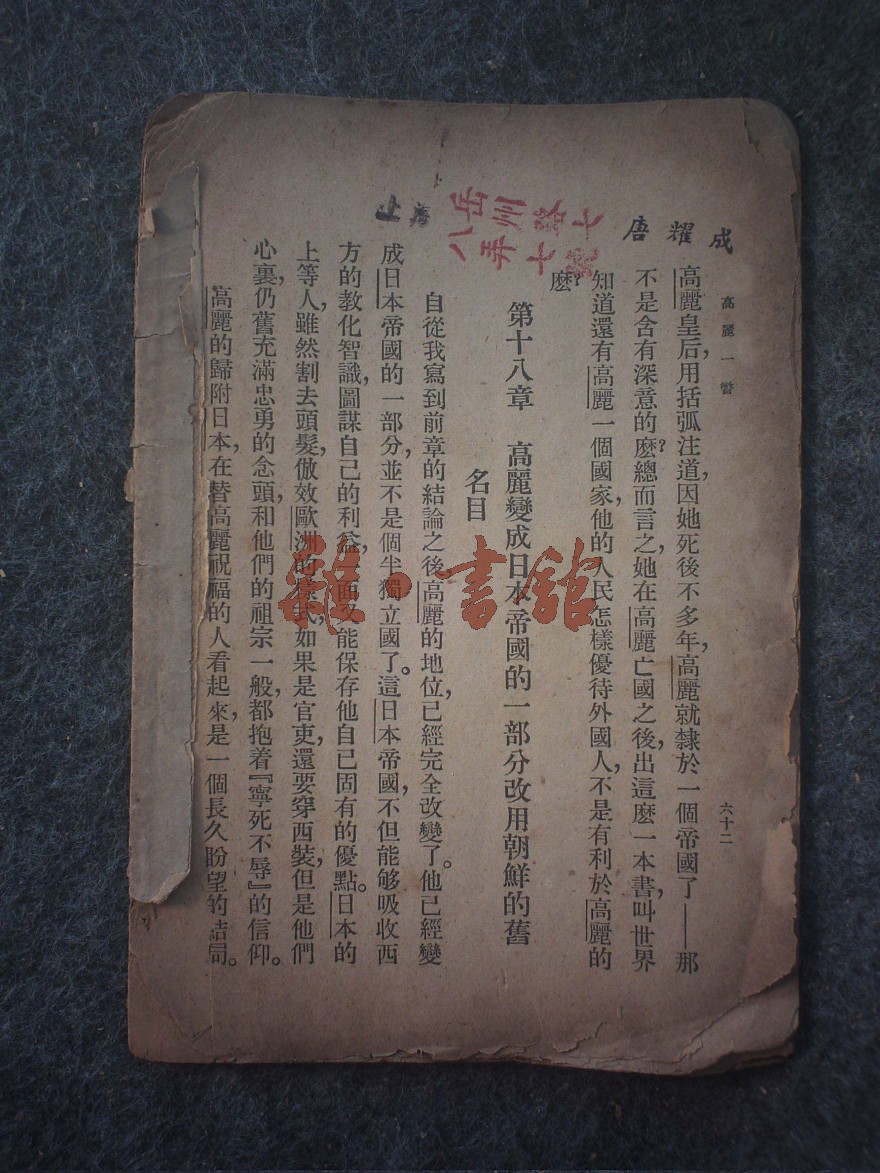 唐耀成
高麗一瞥
六十二
高麗皇后，用括弧注道，因她死後不多年，高麗就隸於一個帝國了——那
不是含有深意的麽？總而言之，她在高麗亡國之後，出這麽一本書，叫世界
知道還有高麗一個國家，他的人民怎樣優待外國人，不是有利於高麗的
麽？
第十八章　高麗變成日本帝國的一部分改用朝鮮的舊
名目
自從我寫到前章的結論之後，高麗的地位，已經完全改變了。他已經變
成日本帝國的一部分，並不是個半獨立國了。這日本帝國，不但能够吸收西
方的教化智識，圖謀自己的利益，而又能保存他自己固有的優點。日本的
上等人，雖然割去頭髮，倣效歐洲的樣式，如果是官吏，還要穿西裝，但是他們
心裏，仍舊充滿忠勇的念頭，和他們的祖宗一般，都抱着『寧死不辱』的信仰。
高麗的歸附日本，在替高麗祝福的人看起來，是一個長久盼望的結局。
雜·書館